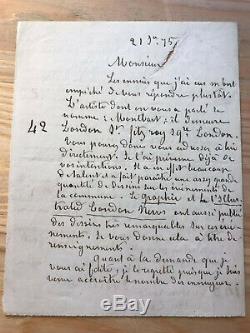 21 Jn 75
Monsieur
Les ennuis que j'ai eus m'ont
empêché de vous répondre plus tôt.
L'artiste dont on vous a parlé se
nomme : Montbard ; il demeure
42
London St. fitz roy sqre London.
Vous pouvez donc vous adresser à lui
directement. Je l'ai prévenu déjà de
vos intentions. Il a en effet beaucoup
de talent et a fait paraître une assez grande
quantité de dessins sur les événements de
la commune. Le Graphic et l'Illus-
trated London News ont aussi publié
des dessins très remarquables sur ces événe-
nements. Je vous donne cela à titre de
renseignements.
Quant à la demande que je
vous ai faite, je la regrette puisque je suis
venu accroître le nombre des ennuyeux.